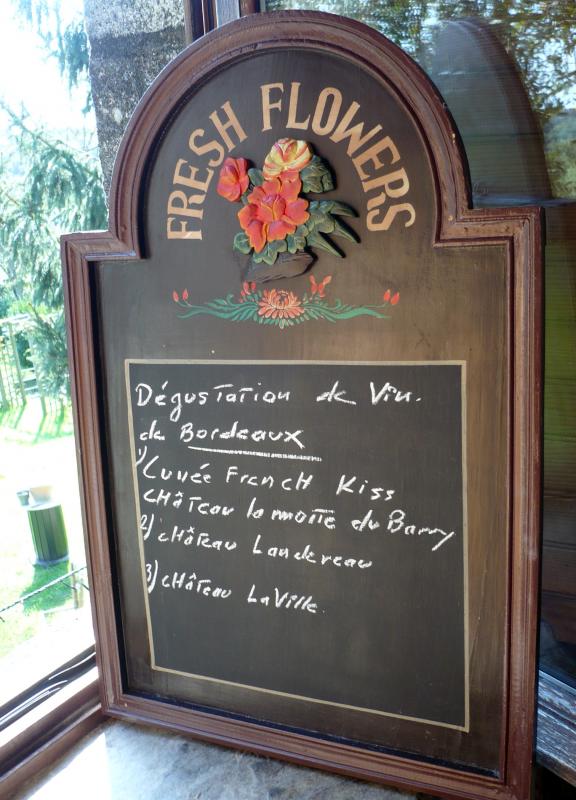 FRESH FLOWERS
Dégustation de Vin.
de Bordeaux
1) Cuvée French Kiss
CHâTeau la motte du Barry
2) CHâTeau Landereau
3) CHâTeau LaVille.